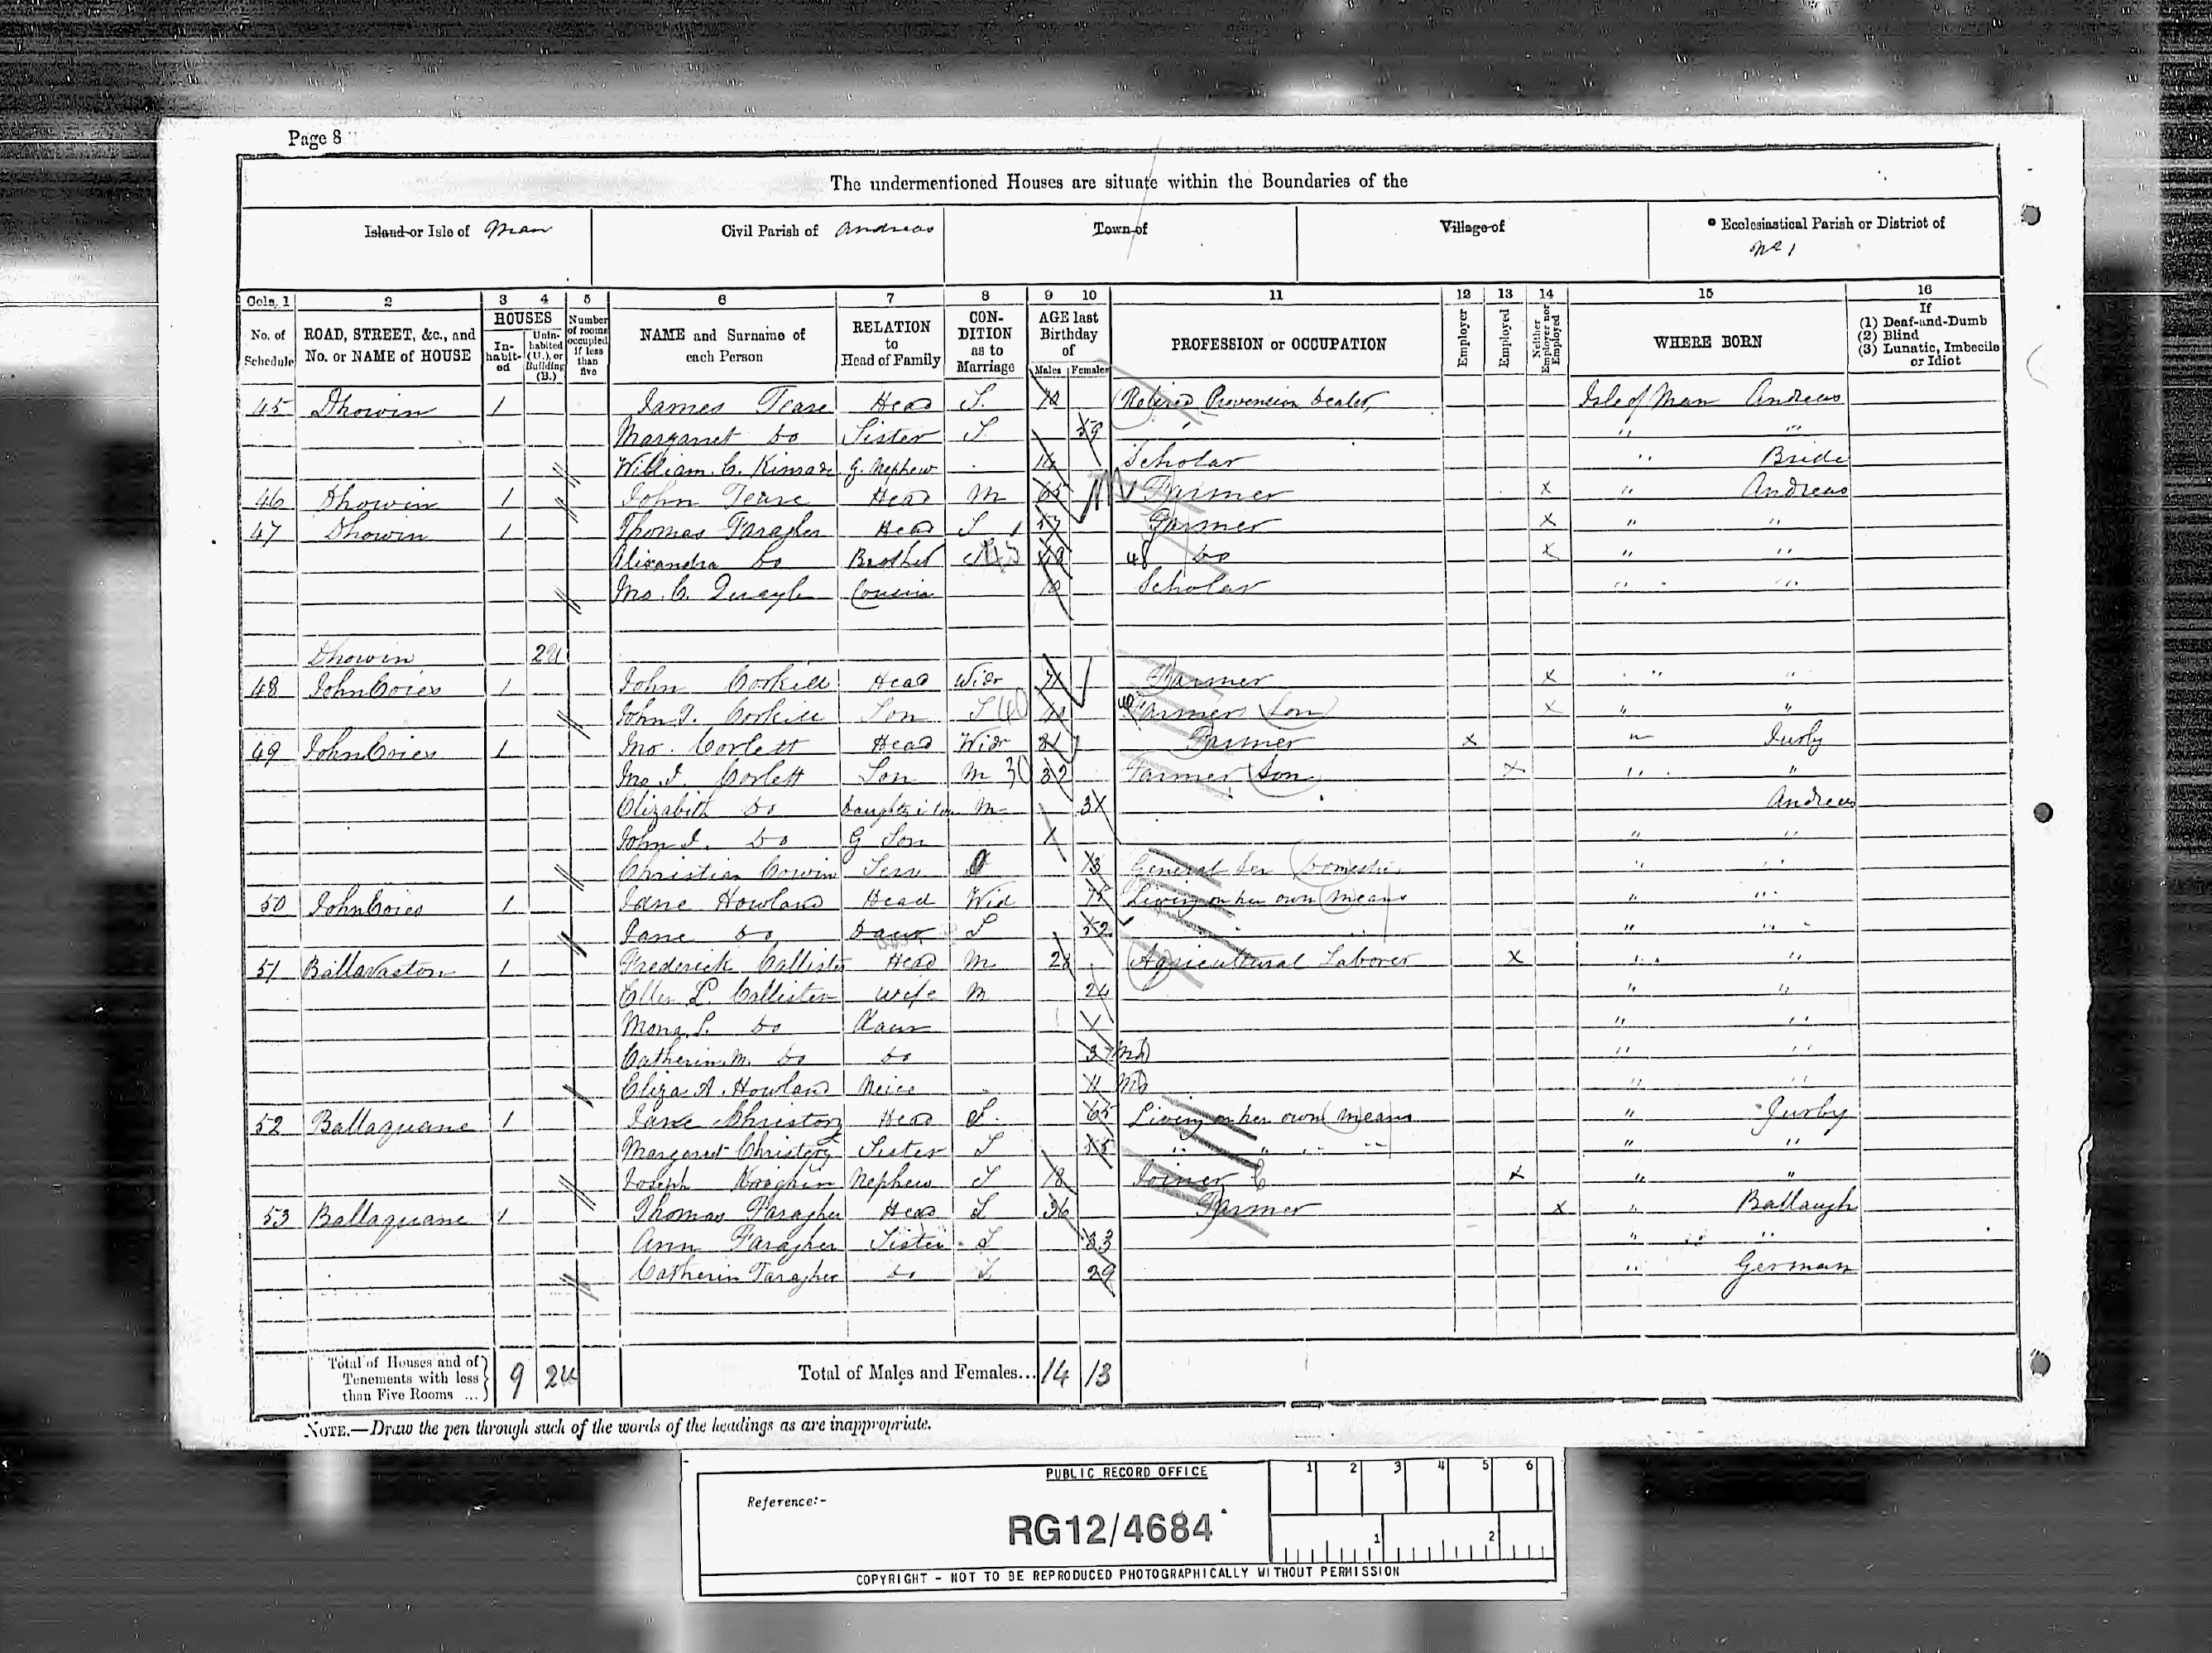 Page 8
The undermentioned Houses are situate within the Boundaries of the
Island or Isle of Man Civil Parish of Andreas Town of Village of Ecclesiastical Parish or District of
No 1
Cols. 1 2 3 4 5 6 7 8 9 10 11 12 13 14 15 16
No. of Schedule ROAD, STREET, &c., and No. or NAME of HOUSE HOUSES In-habit-ed Unin-habited (U.), or Building (B.) Number of rooms occupied if less than five NAME and Surname of each Person RELATION to Head of Family CON-DITION as to Marriage AGE last Birthday of Males Females PROFESSION or OCCUPATION Employer Employed Neither Employer nor Employed WHERE BORN If (1) Deaf-and-Dumb (2) Blind (3) Lunatic, Imbecile or Idiot
45 Dhowin 1 James Teare Head S. Retired Dealer Isle of Man Andreas
Margaret Do Sister S. 59 " "
William. C. G. Nephew 14 Scholar " Bride
46 Dhowin 1 John Teare Head M 65 Farmer x " Andreas
47 Dhowin 1 Thomas Faragher Head S Farmer x " "
Alixandra Do Brother 48 Do x " "
Jno. C. Quayle Cousin Scholar " "
Dhowin 2U
48 1 John Corkill Head Widr Farmer x " "
John Corkill Son S 40 Farmers Son x " "
49 1 Jno. Corlett Head Widr Farmer x " Jurby
Jno. Corlett Son M 30 32 Farmer Son x " "
Elizabeth Do Daughter i law M Andreas
John Do G Son " "
Christian Serv General Ser Domestic " "
50 1 Jane Howland Head Wid 75 Living on her own means " "
Jane Do Daur S 52 " "
51 1 Frederick Callister Head M Agricultural Laborer x " "
Ellen Callister Wife M 24 " "
Mona Do Daur " "
Catherin. M. Do Do 3 Mo " "
Eliza A. Howland Neice 11 Mo " "
52 Ballaquane 1 Jane Head S. 65 Living on her own means " Jurby
Margaret Sister S " "
Joseph Nephew S 18 Joiner x " "
53 Ballaquane 1 Thomas Faragher Head S 36 Farmer x " Ballaugh
Ann Faragher Sister S 33 " "
Catherin Faragher Do S 29 " German
Total of Houses and of Tenements with less than Five Rooms ... 9 2U Total of Males and Females... 14 13
NOTE.—Draw the pen through such of the words of the headings as are inappropriate.
PUBLIC RECORD OFFICE 1 2 3 4 5 6
Reference:-
RG12/4684 1 2
COPYRIGHT - NOT TO BE REPRODUCED PHOTOGRAPHICALLY WITHOUT PERMISSION